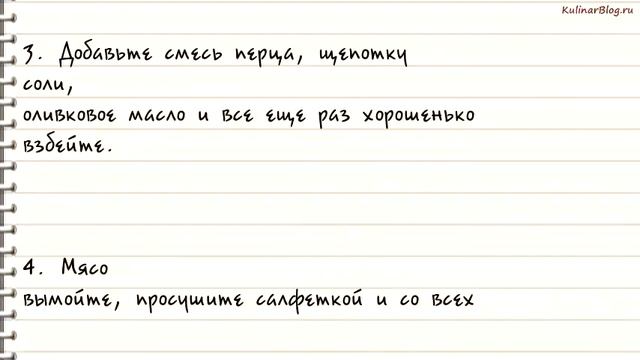 KulinarBlog.ru
3. Добавьте смесь перца, щепотку
соли,
оливковое масло и все еще раз хорошенько
взбейте.
4. Мясо
вымойте, просушите салфеткой и со всех